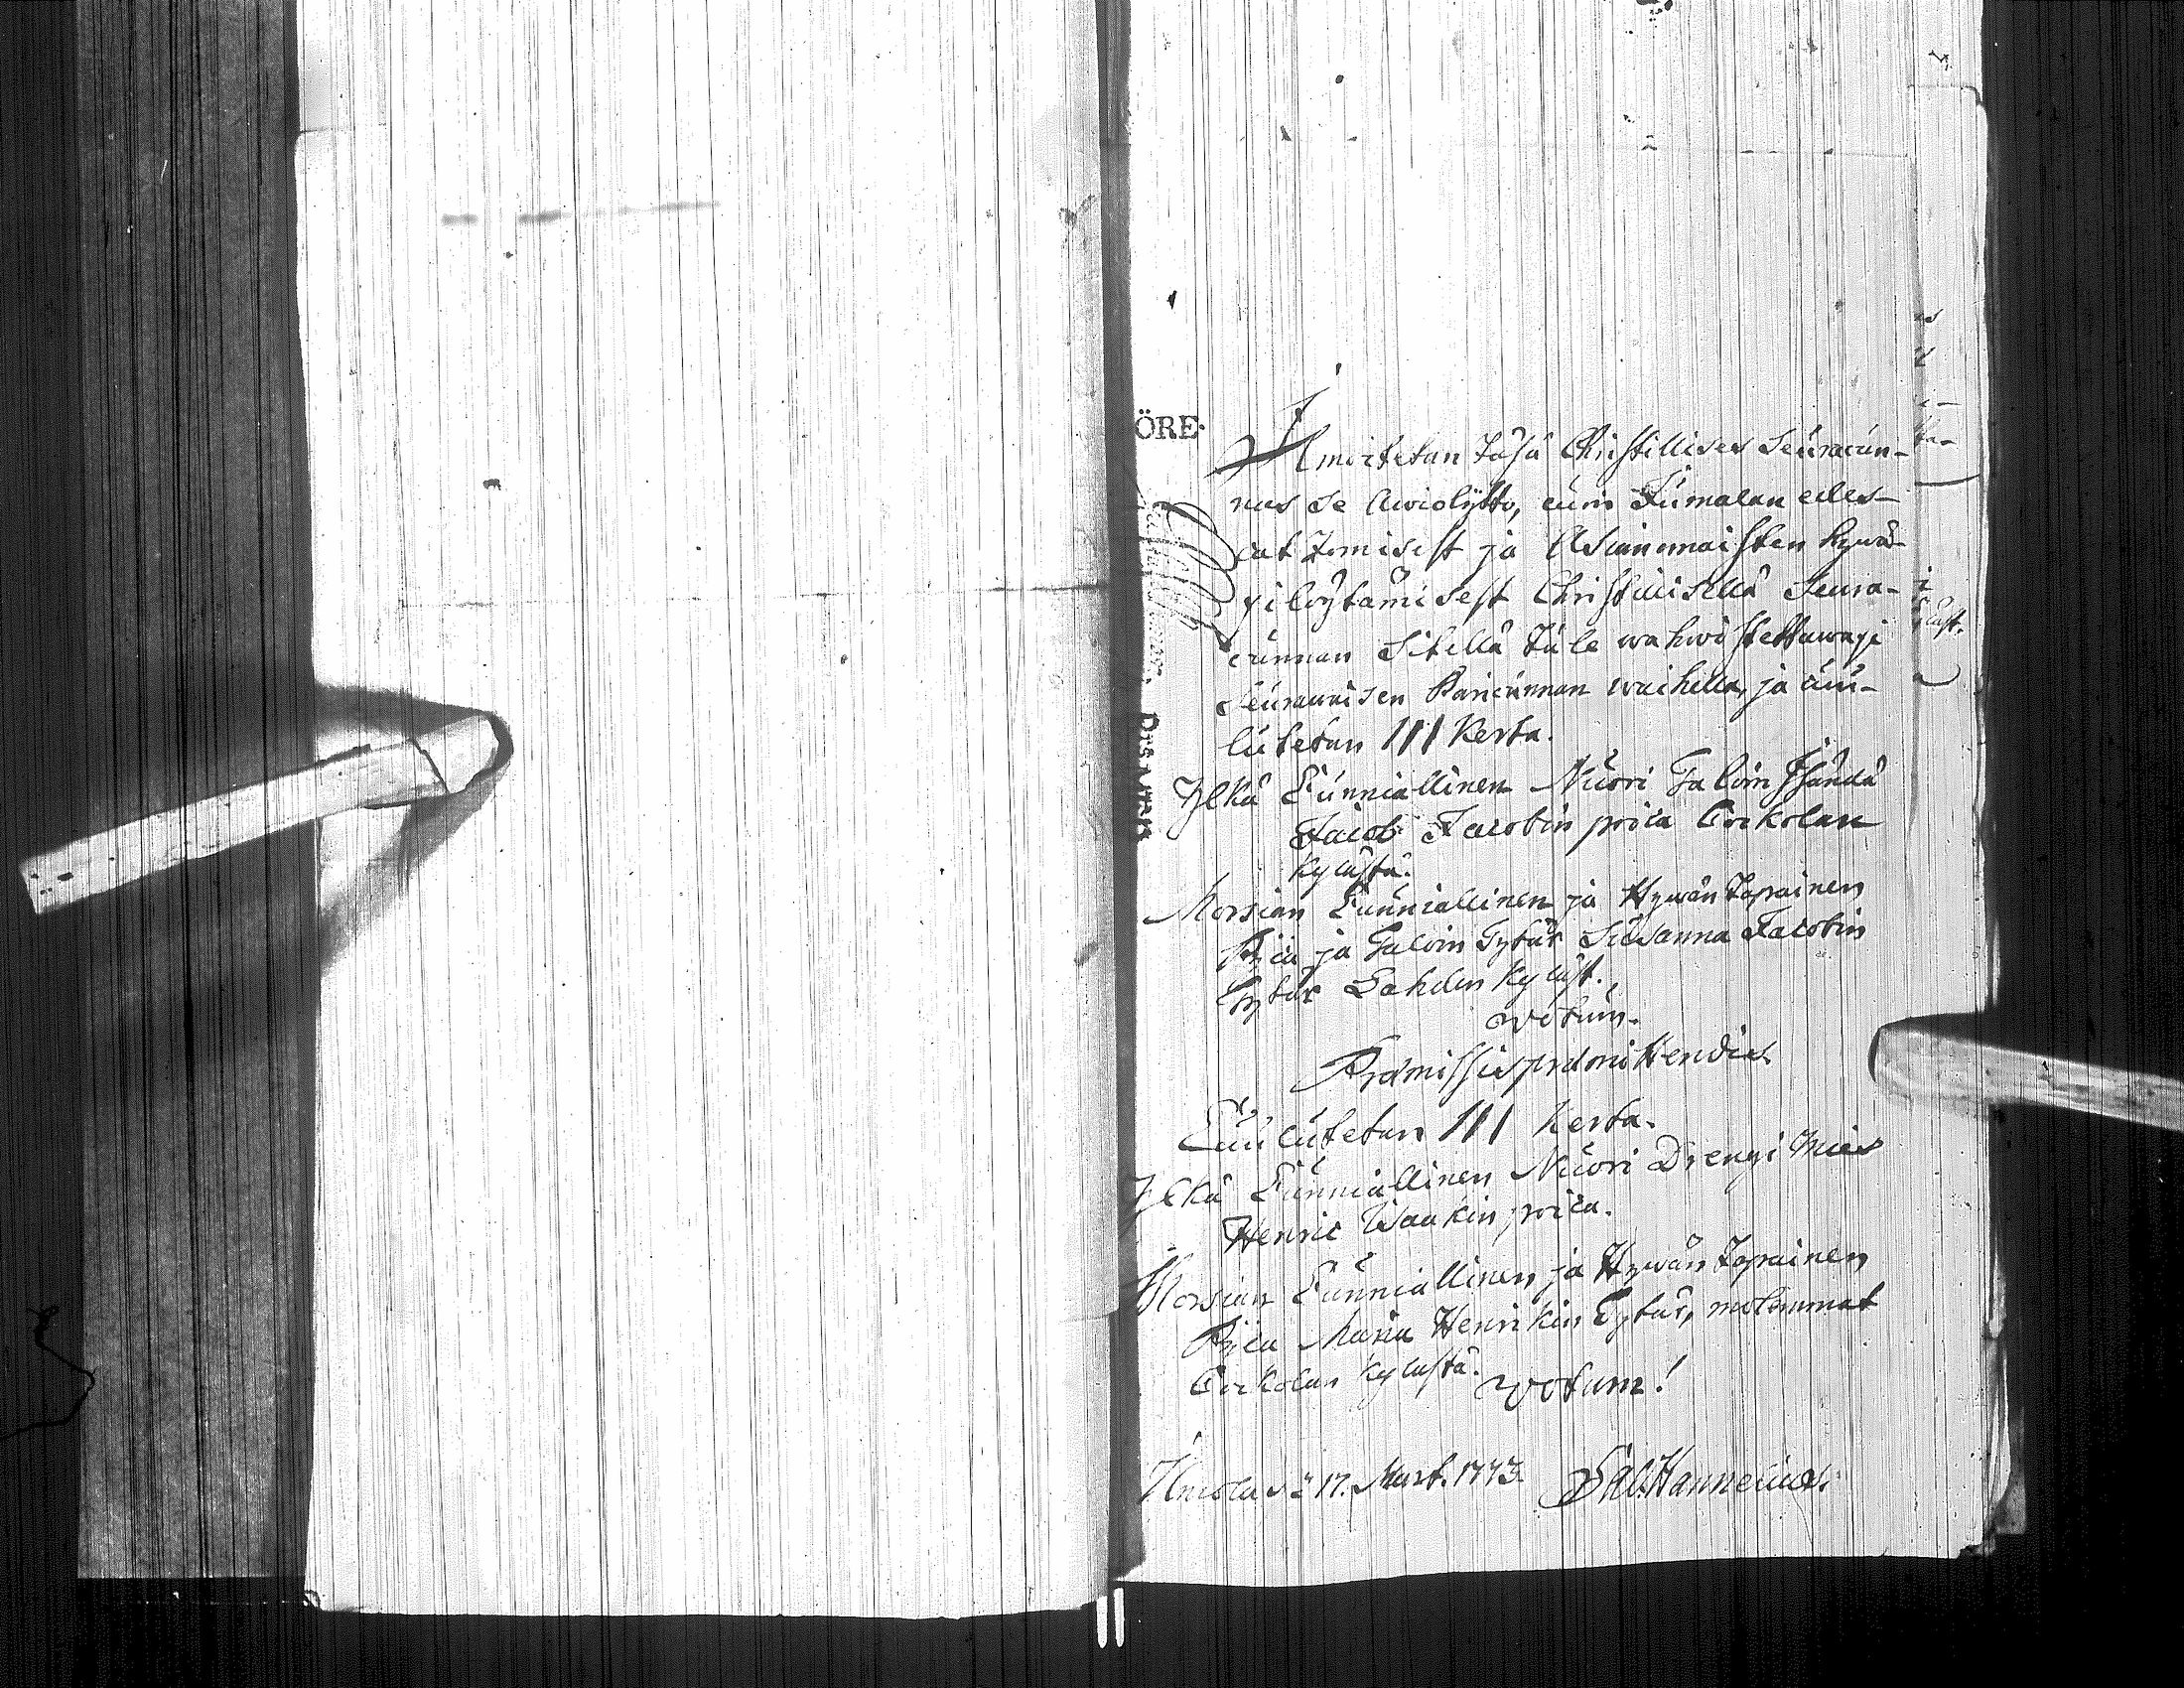 ÖRE.
Ilmoitetan täsä Christillises Seuracun-
nas se Awiolijtto, cuin Jumalan edes-
cat zomisest ja Asianomaisten hywä-
xi löytämisest Christillisellä Seura-
cunnan sitellä tule wahwistettawaxi
seurawaisen Paricunnan waihella, ja cuu-
lutetan III Kerta.
Ylkä Cunniallinen Nuori Taloin Isändä
Jacob Jacobin poica Corkolan
Kylästä.
Morsian Cunniallinen ja Hywän Tapainen
Pijca ja Taloin Tytär Susanna Jacobin
Tytär Lahden Kyläst.
Votum.
Præmissis præmittendis
Cuulutetan III Kerta.
Ylkä Cunniallinen Nuori Drengi Mies
Henric Waakin poica.
Morsian Cunniallinen ja Hywän Tapainen
Pijca Maria Henrikin Tytär, molemmat
Corkolan Kylästä.
Votum!
d: 17. Mart. 1773. Hannelius.